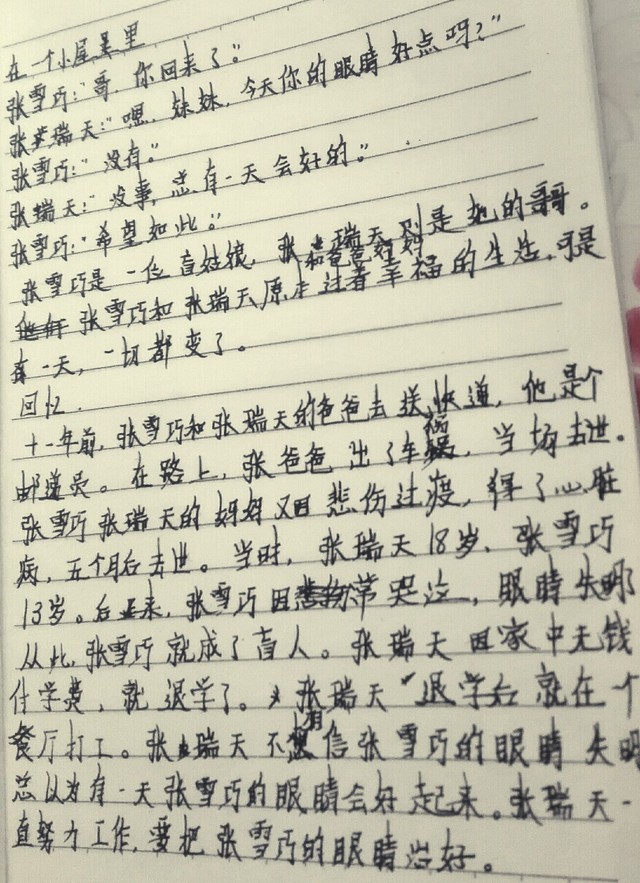 在一个小屋里
张雪巧:"哥,你回来了。"
张瑞天:"嘿,妹妹,今天你的眼睛好点吗?"
张雪巧:"没有。"
张瑞天:"没事,总有一天会好的。"
张雪巧:"希望如此。"
张雪巧是一位盲姑娘,张瑞天则是她的哥哥。
和爸爸妈妈
张雪巧和张瑞天原本过着幸福的生活,可是
有一天,一切都变了。
回忆.
十一年前,张雪巧和张瑞天的爸爸去送快递,他是个
邮递员。在路上,张爸爸出了车祸,当场去世。
张雪巧张瑞天的妈妈又因悲伤过度,得了心脏
病,五个月后去世。当时,张瑞天18岁、张雪巧
13岁。后来,张雪巧因常哭泣,眼睛失明
从此,张雪巧就成了盲人。张瑞天因家中无钱
付学费,就退学了。张瑞天退学后就在一个
餐厅打工。张瑞天不相信张雪巧的眼睛失明
总以为有一天张雪巧的眼睛会好起来。张瑞天一
直努力工作,要把张雪巧的眼睛治好。